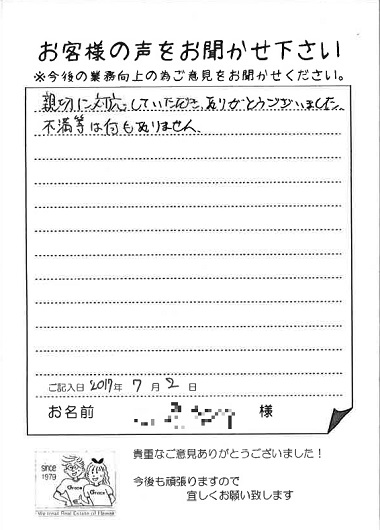 お客様の声をお聞かせ下さい
※今後の業務向上の為ご意見をお聞かせください。
親切に対応していただき、ありがとうございました。
不満等は何もありません。
ご記入日 2017年 7月 2日
お名前 様
since
1979
Grace
Grace
貴重なご意見ありがとうございました！
今後も頑張りますので
宜しくお願い致します